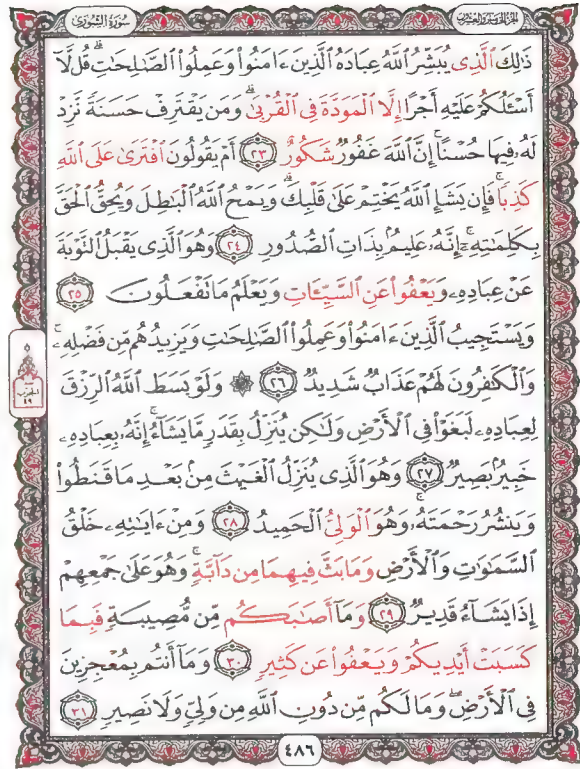 سُورَةُ الشُّورَىٰ
الجزء الخامس والعشرون
ذَٰلِكَ ٱلَّذِى يُبَشِّرُ ٱللَّهُ عِبَادَهُ ٱلَّذِينَ ءَامَنُوا۟ وَعَمِلُوا۟ ٱلصَّٰلِحَٰتِ ۗ قُل لَّآ
أَسْـَٔلُكُمْ عَلَيْهِ أَجْرًا إِلَّا ٱلْمَوَدَّةَ فِى ٱلْقُرْبَىٰ ۗ وَمَن يَقْتَرِفْ حَسَنَةً نَّزِدْ
لَهُۥ فِيهَا حُسْنًا ۚ إِنَّ ٱللَّهَ غَفُورٌ شَكُورٌ ٢٣ أَمْ يَقُولُونَ ٱفْتَرَىٰ عَلَى ٱللَّهِ
كَذِبًا ۖ فَإِن يَشَإِ ٱللَّهُ يَخْتِمْ عَلَىٰ قَلْبِكَ ۗ وَيَمْحُ ٱللَّهُ ٱلْبَٰطِلَ وَيُحِقُّ ٱلْحَقَّ
بِكَلِمَٰتِهِۦٓ ۚ إِنَّهُۥ عَلِيمٌۢ بِذَاتِ ٱلصُّدُورِ ٢٤ وَهُوَ ٱلَّذِى يَقْبَلُ ٱلتَّوْبَةَ
عَنْ عِبَادِهِۦ وَيَعْفُوا۟ عَنِ ٱلسَّيِّـَٔاتِ وَيَعْلَمُ مَا تَفْعَلُونَ ٢٥
وَيَسْتَجِيبُ ٱلَّذِينَ ءَامَنُوا۟ وَعَمِلُوا۟ ٱلصَّٰلِحَٰتِ وَيَزِيدُهُم مِّن فَضْلِهِۦ ۚ
وَٱلْكَٰفِرُونَ لَهُمْ عَذَابٌ شَدِيدٌ ٢٦ ۞ وَلَوْ بَسَطَ ٱللَّهُ ٱلرِّزْقَ
لِعِبَادِهِۦ لَبَغَوْا۟ فِى ٱلْأَرْضِ وَلَٰكِن يُنَزِّلُ بِقَدَرٍ مَّا يَشَآءُ ۚ إِنَّهُۥ بِعِبَادِهِۦ
خَبِيرٌۢ بَصِيرٌ ٢٧ وَهُوَ ٱلَّذِى يُنَزِّلُ ٱلْغَيْثَ مِنۢ بَعْدِ مَا قَنَطُوا۟
وَيَنشُرُ رَحْمَتَهُۥ ۚ وَهُوَ ٱلْوَلِىُّ ٱلْحَمِيدُ ٢٨ وَمِنْ ءَايَٰتِهِۦ خَلْقُ
ٱلسَّمَٰوَٰتِ وَٱلْأَرْضِ وَمَا بَثَّ فِيهِمَا مِن دَآبَّةٍ ۚ وَهُوَ عَلَىٰ جَمْعِهِمْ
إِذَا يَشَآءُ قَدِيرٌ ٢٩ وَمَآ أَصَٰبَكُم مِّن مُّصِيبَةٍ فَبِمَا
كَسَبَتْ أَيْدِيكُمْ وَيَعْفُوا۟ عَن كَثِيرٍ ٣٠ وَمَآ أَنتُم بِمُعْجِزِينَ
فِى ٱلْأَرْضِ ۖ وَمَا لَكُم مِّن دُونِ ٱللَّهِ مِن وَلِىٍّ وَلَا نَصِيرٍ ٣١
الحزب
٤٩
٤٨٦